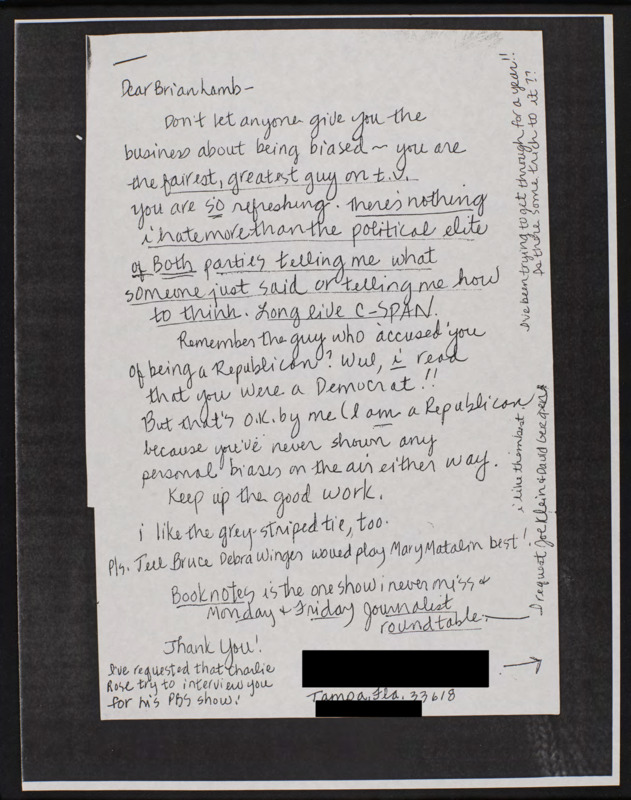 Dear Brian Lamb -
Don't let anyone give you the
business about being biased ~ you are
the fairest, greatest guy on t.v.
you are so refreshing. there's nothing
i hate more than the political elite
of Both parties telling me what
someone just said or telling me how
to think. Long live C-SPAN.
Remember the guy who accused you
of being a Republican? Well, i read
that you were a Democrat!!
But that's O.K. by me (I am a Republican
because you've never shown any
personal biases on the air either way.
Keep up the good work.
i like the grey-striped tie, too.
Pls. Tell Bruce Debra Winger would play Mary Matalin best!
Booknotes is the one show i never miss &
Monday & Friday Journalist
roundtable.
Thank You!
I've requested that Charlie
Rose try to interview you
for his PBS show.
Tampa, Fla. 33618
I request Joe Klein & David Gergen
i like them best.
I've been trying to get through for a year!!
Is there some trick to it??